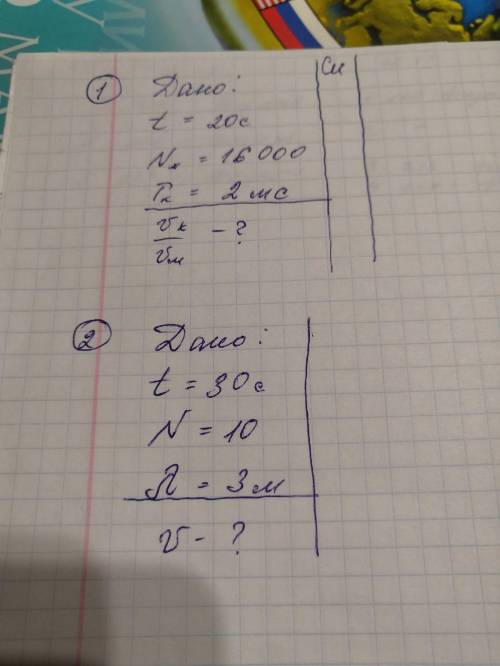 ① Дано: Си
t = 20с
Nм = 16 000
Tк = 2 мс
νк/νм - ?
② Дано:
t = 30с
N = 10
λ = 3м
v - ?